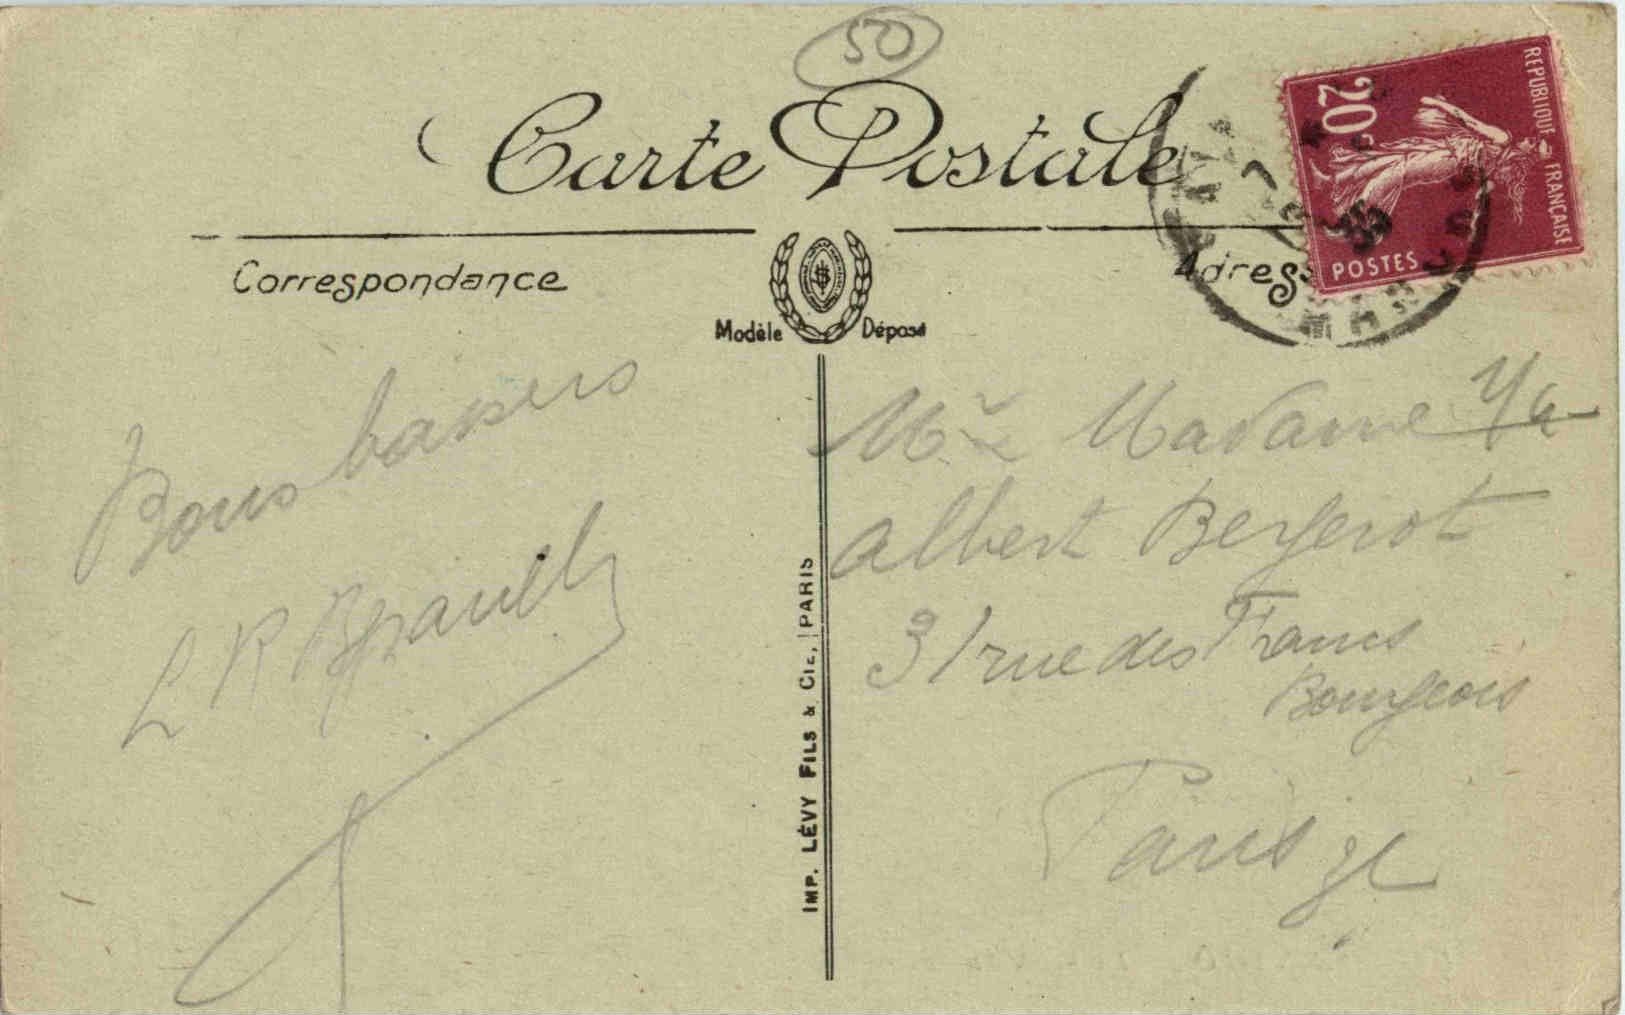 50
Carte Postale
REPUBLIQUE FRANÇAISE
20c
POSTES
Correspondance
Adresse
Modèle Déposé
Bons baisers
L R
Mr Madame
Albert Bergerot
31 rue des Francs
Bourgeois
Paris
IMP. LÉVY FILS & CIE, PARIS